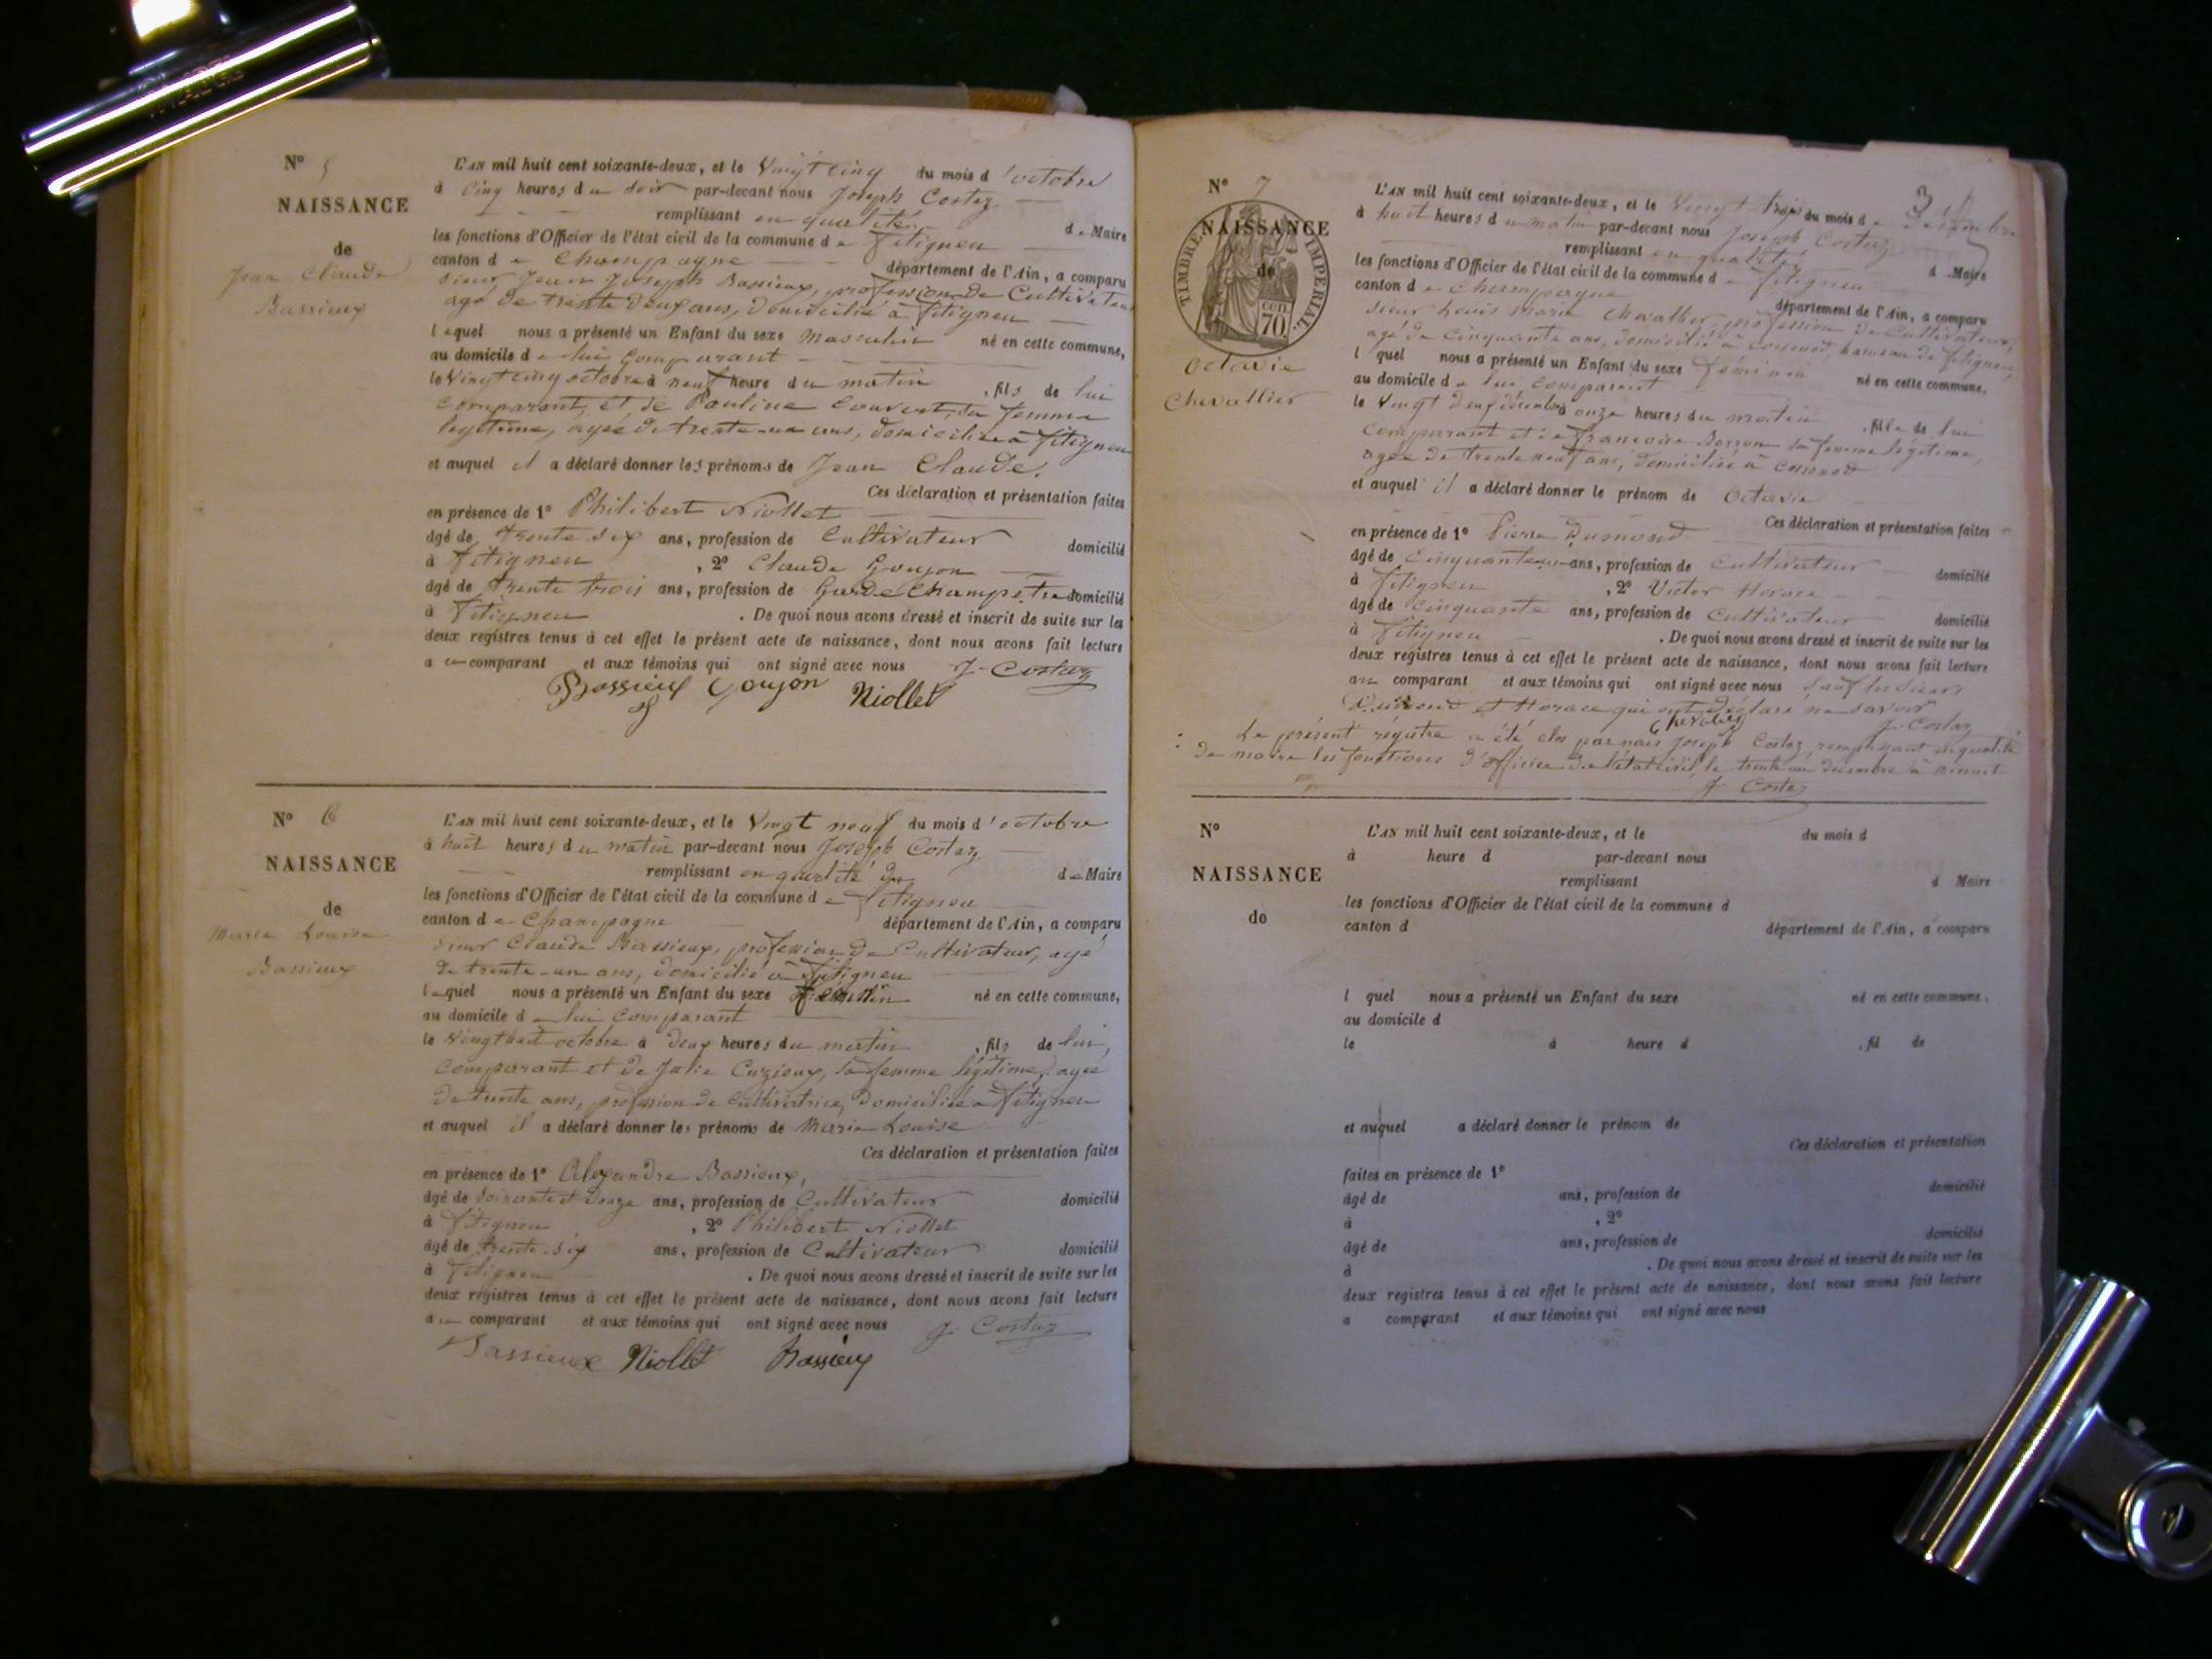 N° 5
NAISSANCE
de
Jean Claude
Bassieux
L'AN mil huit cent soixante-deux, et le Vingt cinq du mois d'octobre
à cinq heures du soir par-devant nous Joseph Costaz
remplissant en qualité de Maire
les fonctions d'Officier de l'état civil de la commune de Fitigneu
canton de Champagne département de l'Ain, a comparu
sieur Jean Joseph Bassieux, profession de Cultivateur
agé de trente deux ans, domicilié à Fitigneu
lequel nous a présenté un Enfant du sexe Masculin né en cette commune,
au domicile de lui Comparant
le Vingt cinq octobre à neuf heure du matin , fils de lui
comparant, et de Pauline Couvert, sa femme
légitime, agée de trente-un ans, domiciliée à Fitigneu
et auquel il a déclaré donner les prénoms de Jean Claude.
Ces déclaration et présentation faites
en présence de 1° Philibert Niollet
âgé de trente six ans, profession de Cultivateur domicilié
à Fitigneu , 2° Claude Goujon
âgé de trente trois ans, profession de Garde Champêtre domicilié
à Fitigneu . De quoi nous avons dressé et inscrit de suite sur les
deux registres tenus à cet effet le présent acte de naissance, dont nous avons fait lecture
au comparant et aux témoins qui ont signé avec nous J. Costaz
Bassieux Goujon Niollet
N° 6
NAISSANCE
de
Marie Louise
Bassieux
L'AN mil huit cent soixante-deux, et le Vingt neuf du mois d'octobre
à huit heures du matin par-devant nous Joseph Costaz
remplissant en qualité de Maire
les fonctions d'Officier de l'état civil de la commune de Fitigneu
canton de Champagne département de l'Ain, a comparu
sieur Claude Bassieux, profession de Cultivateur, agé
de trente-un ans, domicilié à Fitigneu
lequel nous a présenté un Enfant du sexe féminin né en cette commune,
au domicile de lui Comparant
le Vingt huit octobre à deux heures du matin , fils de lui,
comparant et de Julie Cuzieux, sa femme légitime, agée
de trente ans, profession de cultivatrice, domiciliée à Fitigneu
et auquel il a déclaré donner les prénoms de Marie Louise
Ces déclaration et présentation faites
en présence de 1° Alexandre Bassieux,
âgé de soixante et douze ans, profession de Cultivateur domicilié
à Fitigneu , 2° Philibert Niollet
âgé de trente-six ans, profession de Cultivateur domicilié
à Fitigneu . De quoi nous avons dressé et inscrit de suite sur les
deux registres tenus à cet effet le présent acte de naissance, dont nous avons fait lecture
au comparant et aux témoins qui ont signé avec nous J. Costaz
Bassieux Niollet Bassieux
N° 7
NAISSANCE
de
TIMBRE IMPERIAL.
CEN. 70
Octavie
Chevallier
L'AN mil huit cent soixante-deux, et le Vingt trois du mois de décembre
à huit heures du matin par-devant nous Joseph Costaz
remplissant en qualité d Maire
les fonctions d'Officier de l'état civil de la commune de Fitigneu
canton de Champagne département de l'Ain, a comparu
sieur Louis Marie Chevallier, profession de Cultivateur,
agé de cinquante ans, domicilié à hameau de Fitigneu,
l quel nous a présenté un Enfant du sexe féminin né en cette commune,
au domicile de lui comparant
le Vingt deux décembre à onze heures du matin , fille de lui
comparant et de Françoise sa femme légitime,
agée de trente neuf ans, domiciliée à
et auquel il a déclaré donner le prénom de Octavie
Ces déclaration et présentation faites
en présence de 1° Pierre Dumond
âgé de Cinquante ans, profession de Cultivateur domicilié
à Fitigneu , 2° Victor Horace
âgé de cinquante ans, profession de Cultivateur domicilié
à Fitigneu . De quoi nous avons dressé et inscrit de suite sur les
deux registres tenus à cet effet le présent acte de naissance, dont nous avons fait lecture
au comparant et aux témoins qui ont signé avec nous sauf les sieurs
Dumond et Horace qui ont déclaré ne savoir J. Costaz
Le présent régistre a été clos par nous Joseph Costaz, remplissant en qualité
de maire les fonctions d'officier de l'état civil, le trente un décembre à minuit
J. Costaz
N°
NAISSANCE
de
L'AN mil huit cent soixante-deux, et le du mois d
à heure d par-devant nous
remplissant d Maire
les fonctions d'Officier de l'état civil de la commune d
canton d département de l'Ain, a comparu
l quel nous a présenté un Enfant du sexe né en cette commune,
au domicile d
le à heure d , fil de
et auquel a déclaré donner le prénom de
Ces déclaration et présentation
faites en présence de 1°
âgé de ans, profession de domicilié
à , 2°
âgé de ans, profession de domicilié
à . De quoi nous avons dressé et inscrit de suite sur les
deux registres tenus à cet effet le présent acte de naissance, dont nous avons fait lecture
a comparant et aux témoins qui ont signé avec nous